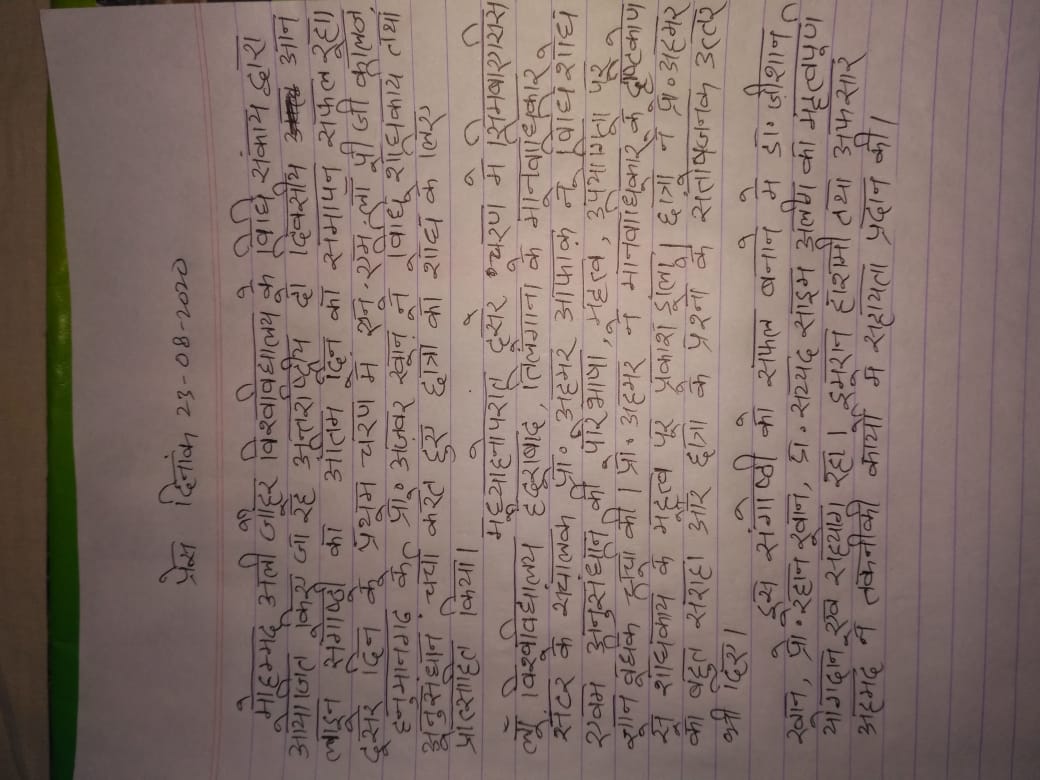 प्रेस दिनांक 23-08-2020
मोहम्मद अली जौहर विश्वविद्यालय के विधि संकाय द्वारा
आयोजित किए जा रहे अंतर्राष्ट्रीय दो दिवसीय आन
लाइन संगोष्ठी का अंतिम दिन का समापन सफल रहा।
दूसरे दिन के प्रथम चरण में एन.एम लॉ पी जी कालेज
हनुमानगढ़ के प्रो० अजवर खान ने विधि शोधकार्य तथा
अनुसंधान चर्चा करते हुए छात्रों को शोध के लिए
प्रोत्साहित किया।
मध्याहनोपरांत दूसरे चरण में सिमबायोसिस
लॉ विश्वविद्यालय हैदराबाद, तेलंगाना के मानवाधिकार
सेंटर के संचालक प्रो० अहमर आफाक ने विधि शोध
एवम अनुसंधान की परिभाषा, महत्व, उपयोगिता पर
ज्ञान वर्धक चर्चा की। प्रो० अहमर ने मानवाधिकार के दृष्टिकोण
से शोधकार्य के महत्व पर प्रकाश डाला। छात्रों ने प्रो० अहमर
को बहुत सराहा और छात्रों के प्रश्नों के संतोषजनक उत्तर
भी दिए।
इस संगोष्ठी को सफल बनाने में डा० जीशान
खान, प्रो० रेहान खान, प्रो० सय्यद साइम अलीग का महत्वपूर्ण
योगदान एवं सहयोग रहा। इमरान हाशमी तथा अफसार
अहमद ने तकनीकी कार्यों में सहायता प्रदान की।